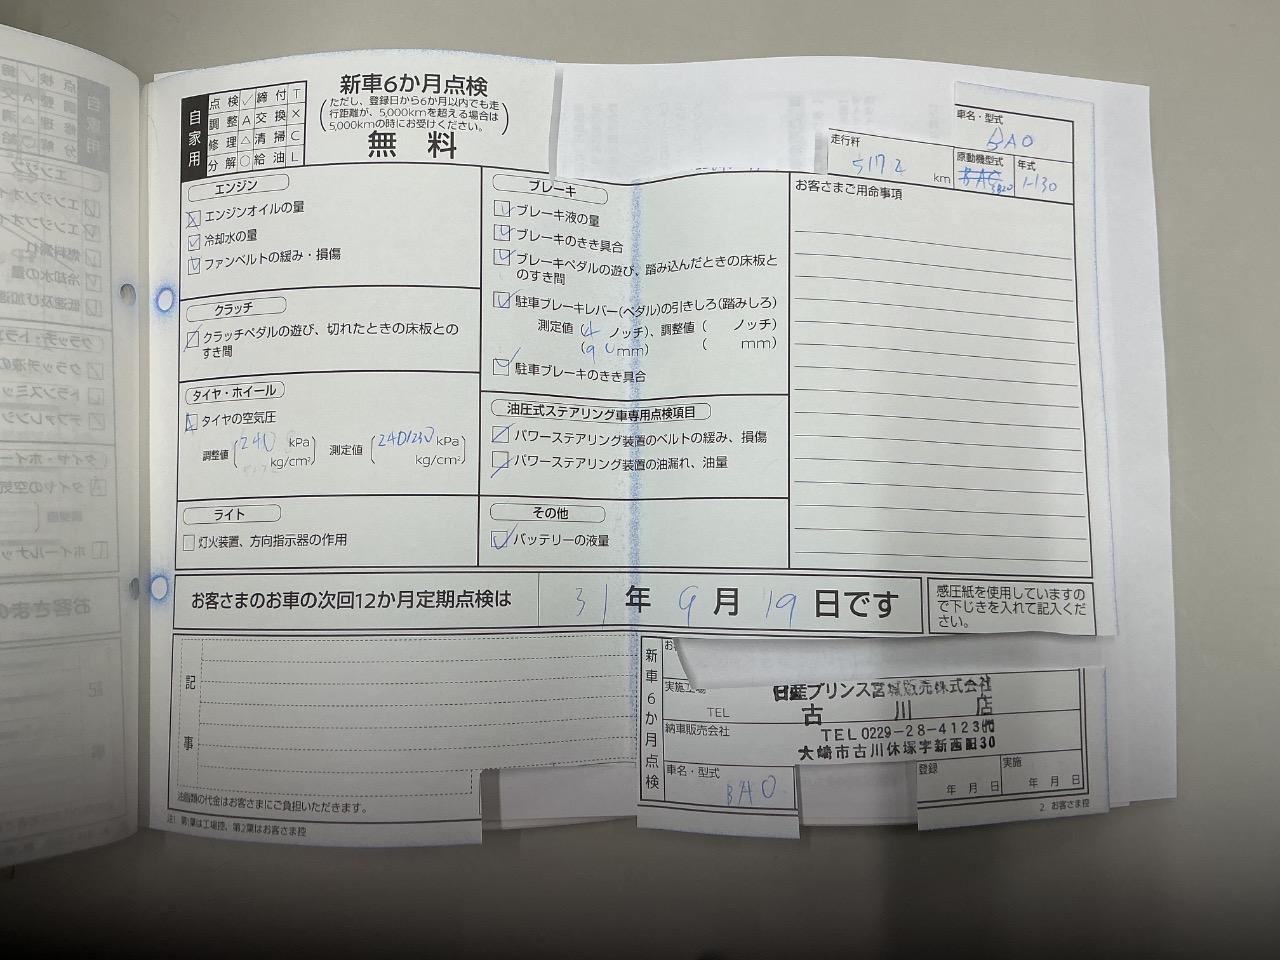 自家用
点検 ✓ 締付 T
調整 A 交換 ×
修理 △ 清掃 C
分解 ○ 給油 L
新車6か月点検
(ただし、登録日から6か月以内でも走
行距離が、5,000kmを超える場合は
5,000kmの時にお受けください。)
無料
車名・型式
BA0
走行粁
5172 km
原動機型式
年式
1-130
エンジン
エンジンオイルの量
冷却水の量
ファンベルトの緩み・損傷
クラッチ
クラッチペダルの遊び、切れたときの床板との
すき間
タイヤ・ホイール
タイヤの空気圧
調整値 (240 kPa 測定値 (240/230 kPa
kg/cm²) kg/cm²)
ライト
灯火装置、方向指示器の作用
ブレーキ
ブレーキ液の量
ブレーキのきき具合
ブレーキペダルの遊び、踏み込んだときの床板と
のすき間
駐車ブレーキレバー(ペダル)の引きしろ(踏みしろ)
測定値 (4 ノッチ)、調整値 ( ノッチ)
(90mm) ( mm)
駐車ブレーキのきき具合
油圧式ステアリング車専用点検項目
パワーステアリング装置のベルトの緩み、損傷
パワーステアリング装置の油漏れ、油量
その他
バッテリーの液量
お客さまご用命事項
お客さまのお車の次回12か月定期点検は 31年 9月 19日です
感圧紙を使用していますの
で下じきを入れて記入くだ
さい。
記事
油脂類の代金はお客さまにご負担いただきます。
注) 第1葉は工場控、第2葉はお客さま控
新車6か月点検
実施工場
TEL
日産プリンス宮城販売株式会社
古川店
納車販売会社
TEL 0229-28-4123㈹
大崎市古川休塚字新西田30
車名・型式
BA0
登録
年 月 日
実施
年 月 日
2. お客さま控